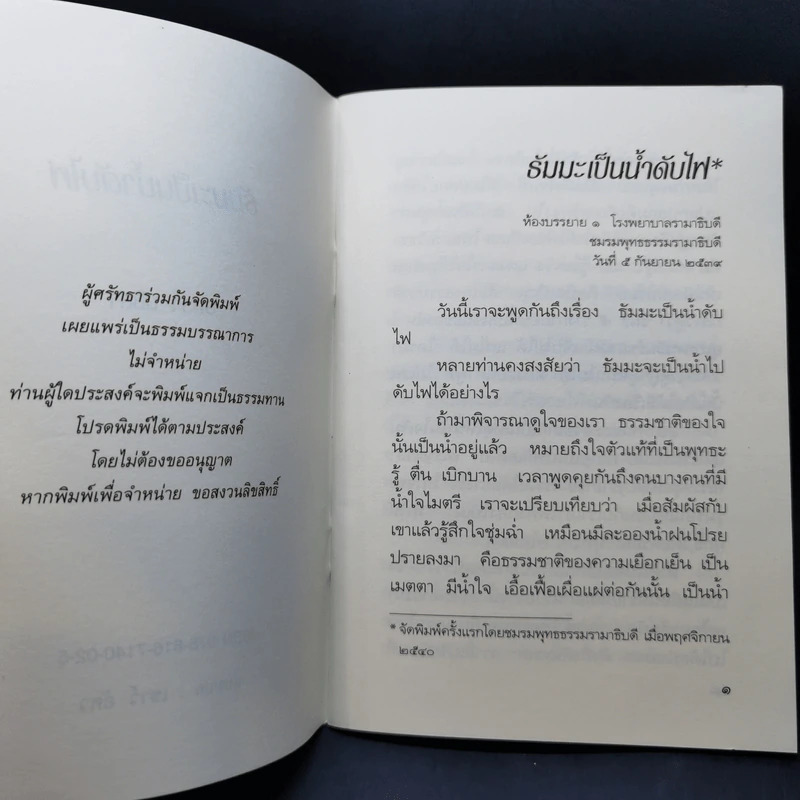 ผู้ศรัทธาร่วมกันจัดพิมพ์
เผยแพร่เป็นธรรมบรรณาการ
ไม่จำหน่าย
ท่านผู้ใดประสงค์จะพิมพ์แจกเป็นธรรมทาน
โปรดพิมพ์ได้ตามประสงค์
โดยไม่ต้องขออนุญาต
หากพิมพ์เพื่อจำหน่าย ขอสงวนลิขสิทธิ์
ธัมมะเป็นน้ำดับไฟ*
ห้องบรรยาย ๑ โรงพยาบาลรามาธิบดี
ชมรมพุทธธรรมรามาธิบดี
วันที่ ๕ กันยายน ๒๕๓๙
วันนี้เราจะพูดกันถึงเรื่อง ธัมมะเป็นน้ำดับ
ไฟ
หลายท่านคงสงสัยว่า ธัมมะจะเป็นน้ำไป
ดับไฟได้อย่างไร
ถ้ามาพิจารณาดูใจของเรา ธรรมชาติของใจ
นั้นเป็นน้ำอยู่แล้ว หมายถึงใจตัวแท้ที่เป็นพุทธะ
รู้ ตื่น เบิกบาน เวลาพูดคุยกันถึงคนบางคนที่มี
น้ำใจไมตรี เราจะเปรียบเทียบว่า เมื่อสัมผัสกับ
เขาแล้วรู้สึกใจชุ่มฉ่ำ เหมือนมีละอองน้ำฝนโปรย
ปรายลงมา คือธรรมชาติของความเยือกเย็น เป็น
เมตตา มีน้ำใจ เอื้อเฟื้อเผื่อแผ่ต่อกันนั้น เป็นน้ำ
* จัดพิมพ์ครั้งแรกโดยชมรมพุทธธรรมรามาธิบดี เมื่อพฤศจิกายน
๒๕๔๐
๑